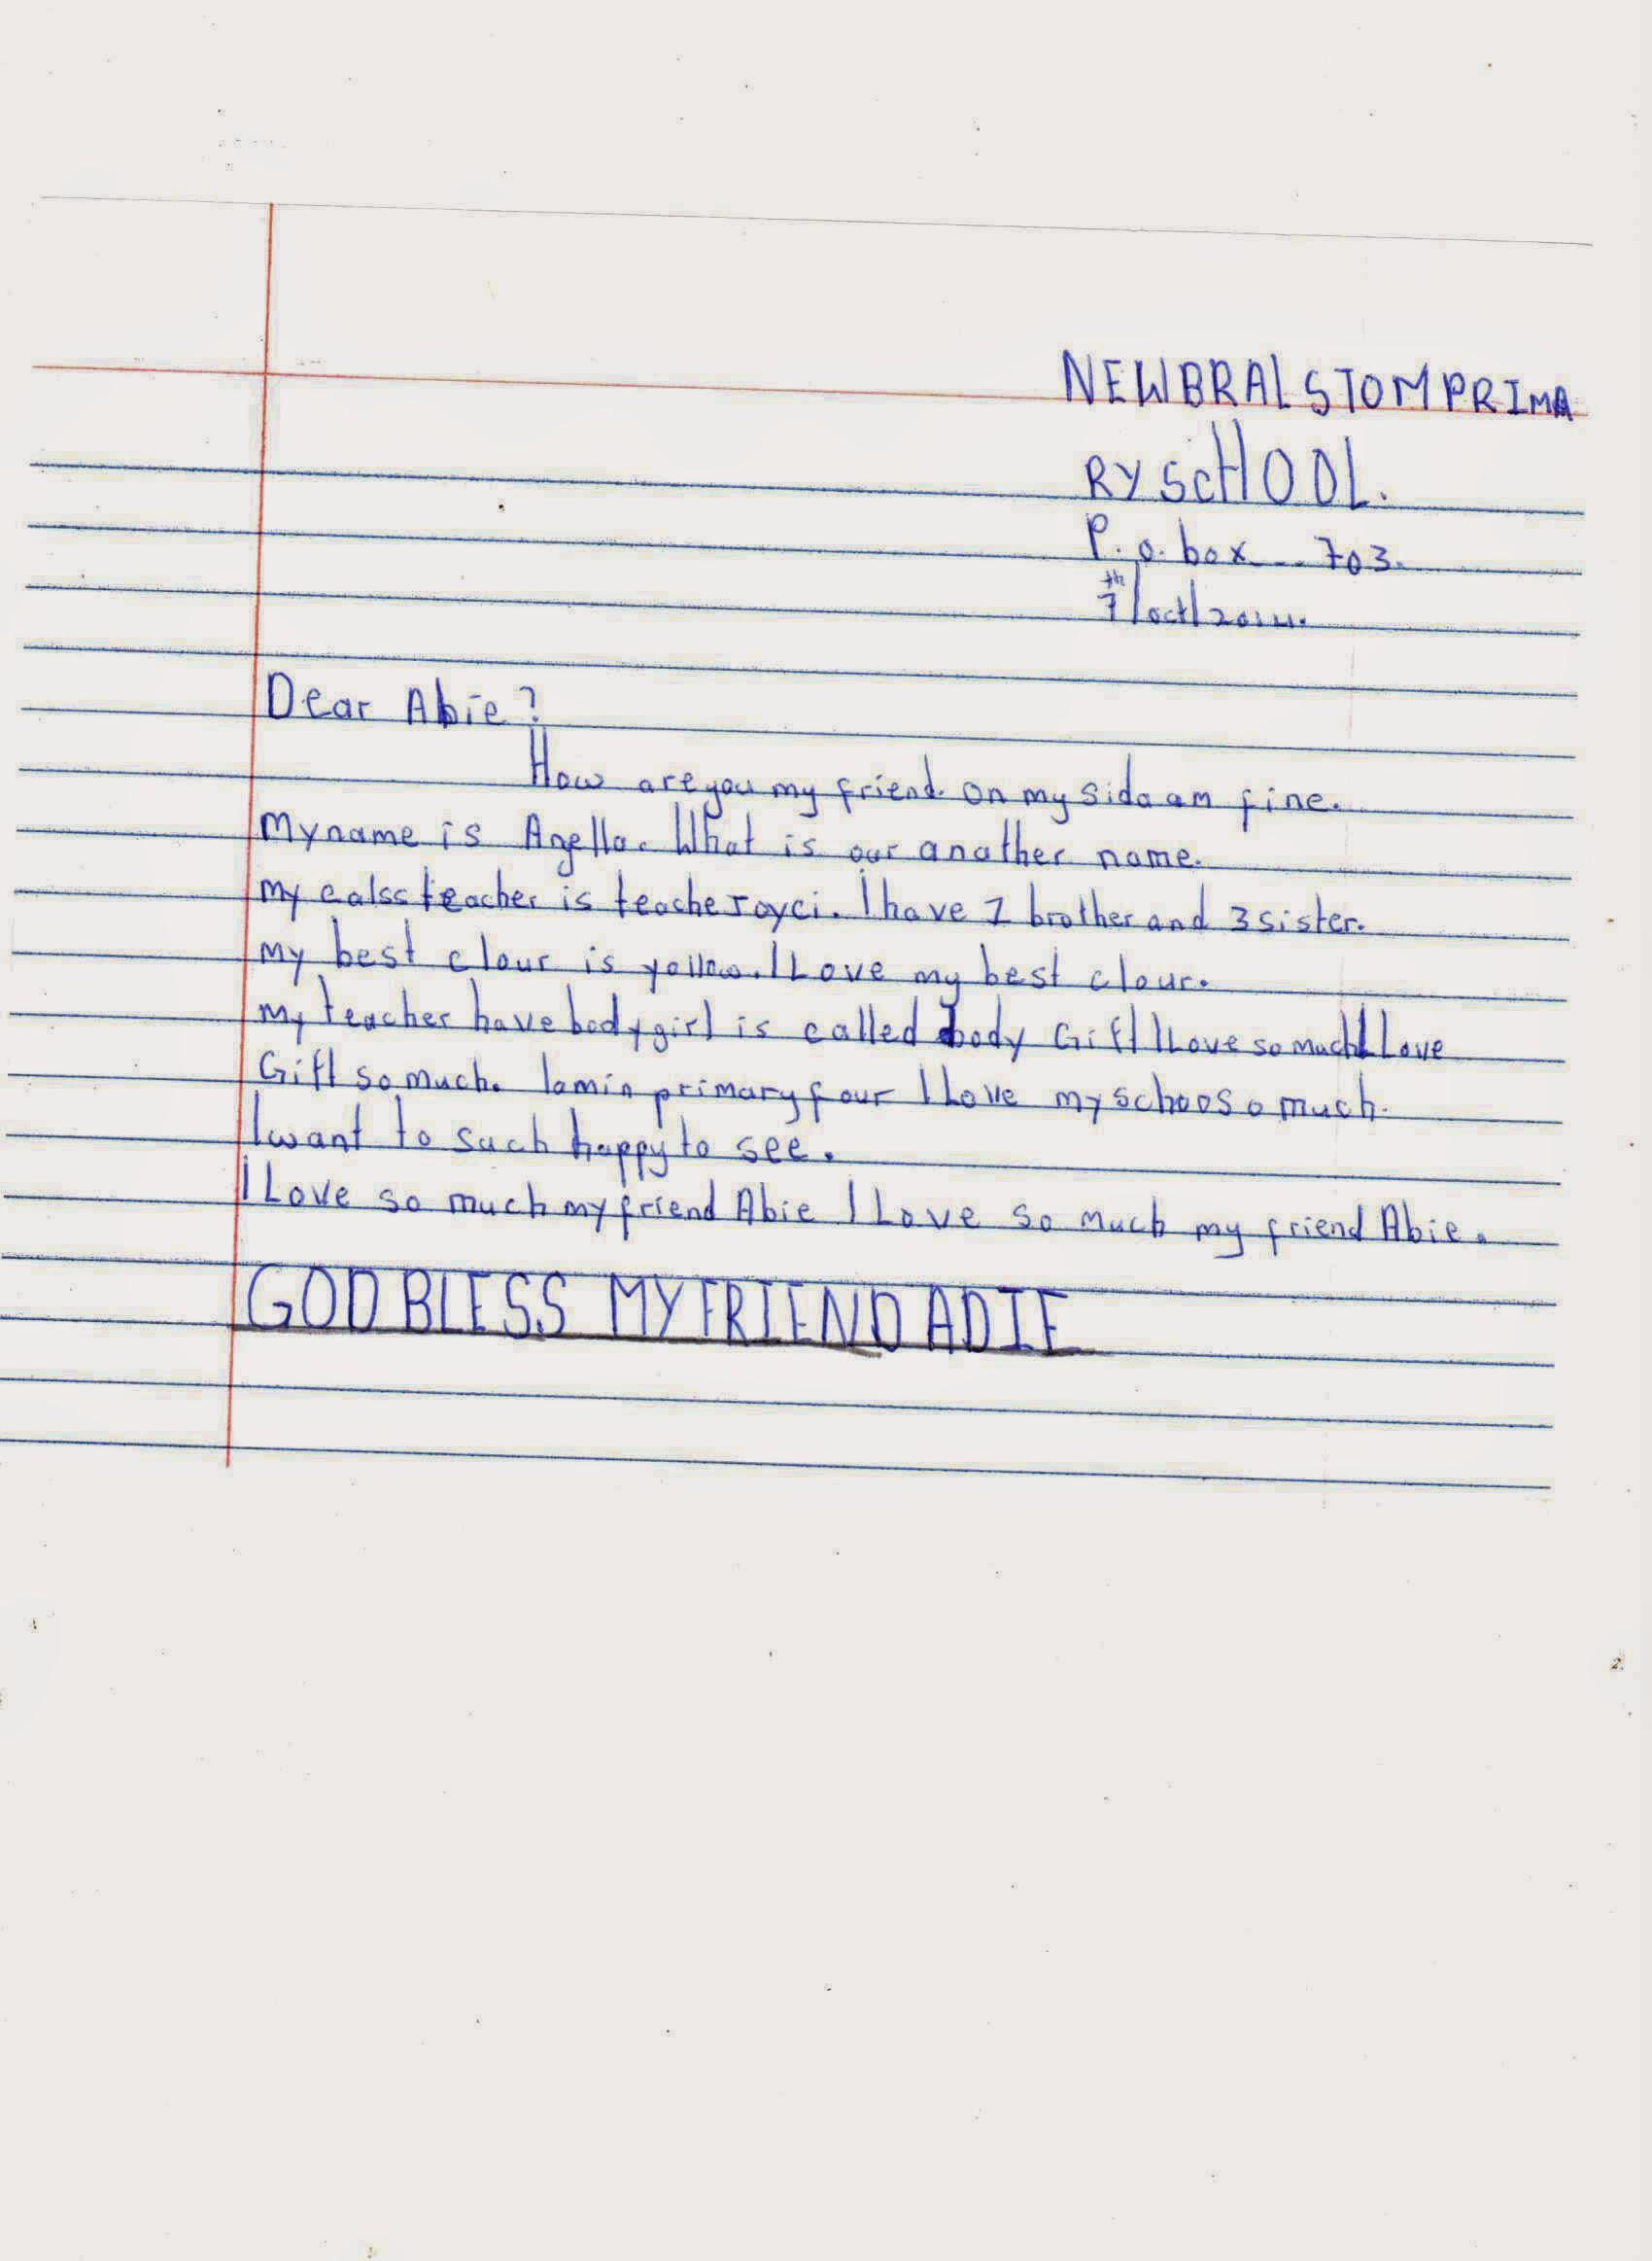 NEWBRALSTOMPRIMA
RY SCHOOL.
P.o.box---703.
7th/oct/2014.
Dear Abie?
How are you my friend. On my sida am fine.
Myname is Agella. What is our another name.
my calss teacher is teache Joyci. I have 1 brother and 3 sister.
my best clour is yollow. I Love my best clour.
my teacher have body girl is called body Gift I Love so much I Love
Gift so much. Iamin primary four I Love my schoosomuch.
I want to such happy to see.
I Love so much my friend Abie I Love so much my friend Abie.
GOD BLESS MY FRIEND ADIE